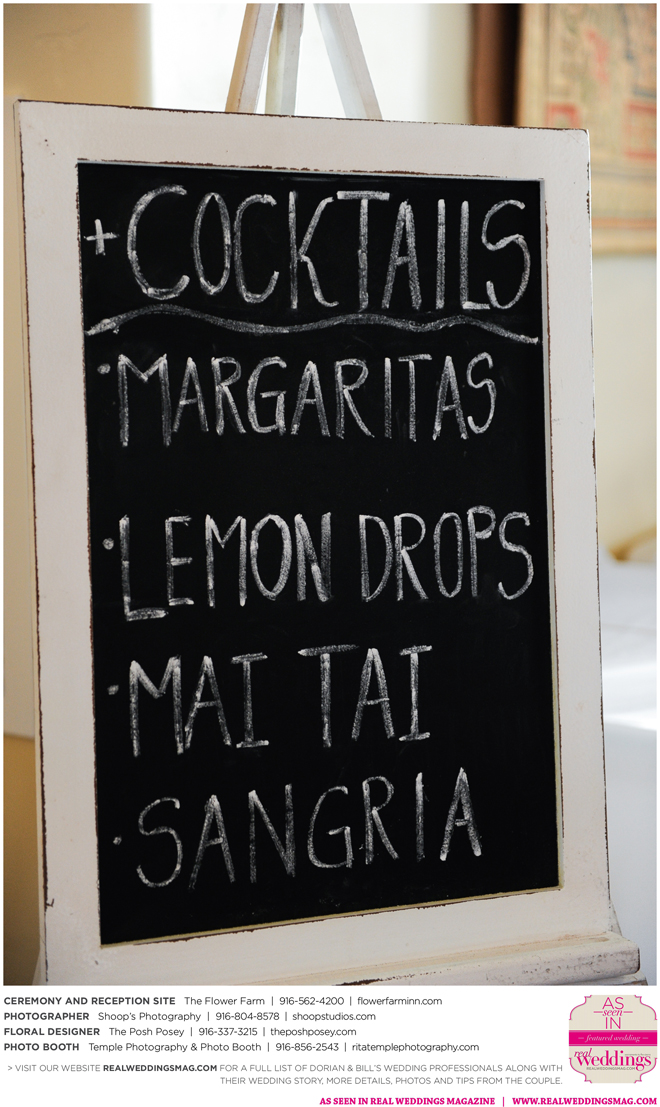 +COCKTAILS
·MARGARITAS
·LEMON DROPS
·MAI TAI
·SANGRIA
CEREMONY AND RECEPTION SITE The Flower Farm | 916-562-4200 | flowerfarminn.com
PHOTOGRAPHER Shoop's Photography | 916-804-8578 | shoopstudios.com
FLORAL DESIGNER The Posh Posey | 916-337-3215 | theposhposey.com
PHOTO BOOTH Temple Photography & Photo Booth | 916-856-2543 | ritatemplephotography.com
> VISIT OUR WEBSITE REALWEDDINGSMAG.COM FOR A FULL LIST OF DORIAN & BILL'S WEDDING PROFESSIONALS ALONG WITH
THEIR WEDDING STORY, MORE DETAILS, PHOTOS AND TIPS FROM THE COUPLE.
AS
seen
IN
featured wedding
real
weddings
REALWEDDINGSMAG.COM
AS SEEN IN REAL WEDDINGS MAGAZINE | WWW.REALWEDDINGSMAG.COM